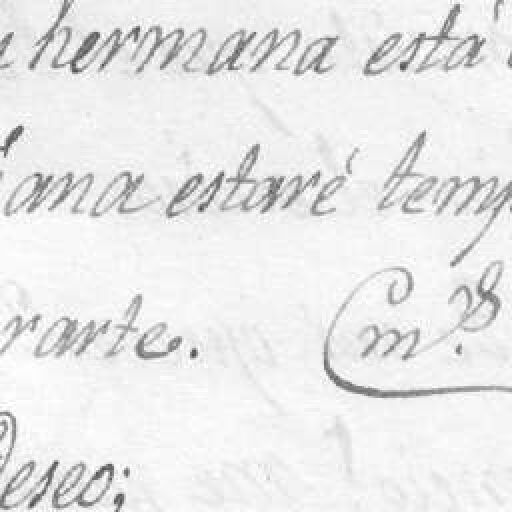 hermana está
ana estaré temp
rarte.
Deseo;